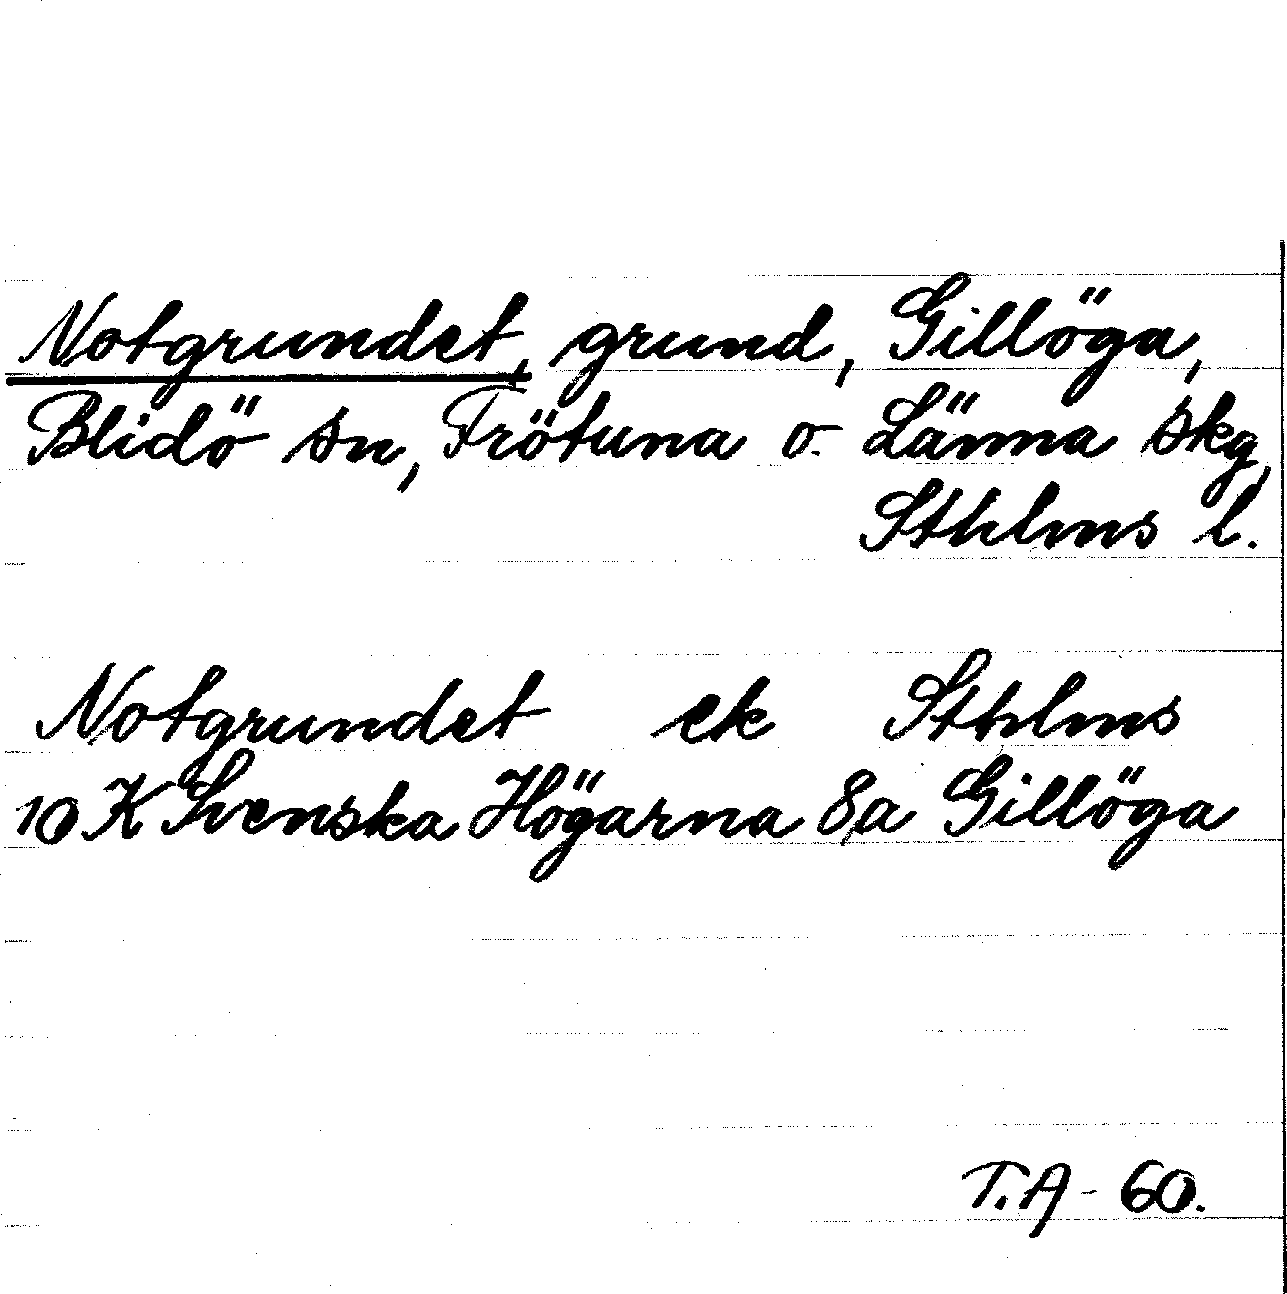 Notgrundet, grund, Gillöga,
Blidö sn, Frötuna o. Länna skg,
Sthlms l.
Notgrundet ek Sthlms
10 K Svenska Högarna 8a Gillöga
T.A - 60.